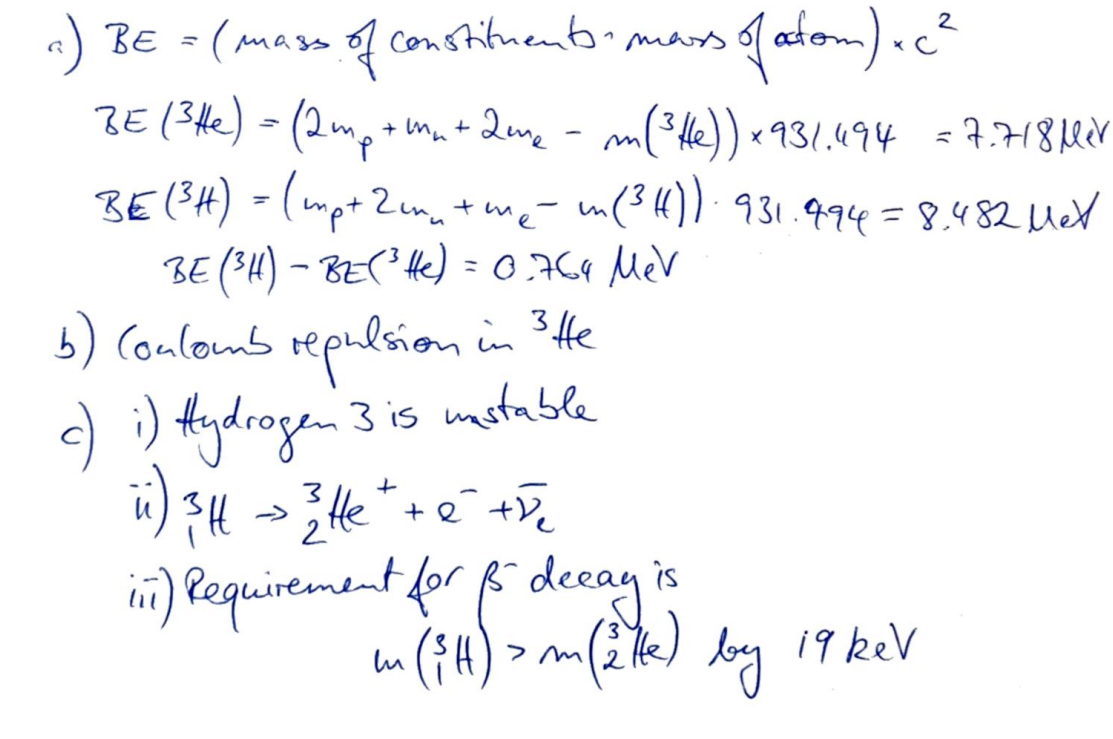 a) BE = (mass of constituents - mass of atom) × c²
BE (³He) = (2mₚ + mₙ + 2mₑ - m(³He)) × 931.494 = 7.718 MeV
BE (³H) = (mₚ + 2mₙ + mₑ - m(³H)) · 931.494 = 8.482 MeV
BE (³H) - BE(³He) = 0.764 MeV
b) Coulomb repulsion in ³He
c) i) Hydrogen 3 is unstable
ii) ³₁H → ³₂He⁺ + e⁻ + ν̄ₑ
iii) Requirement for β⁻ decay is
m(³₁H) > m(³₂He) by 19 keV